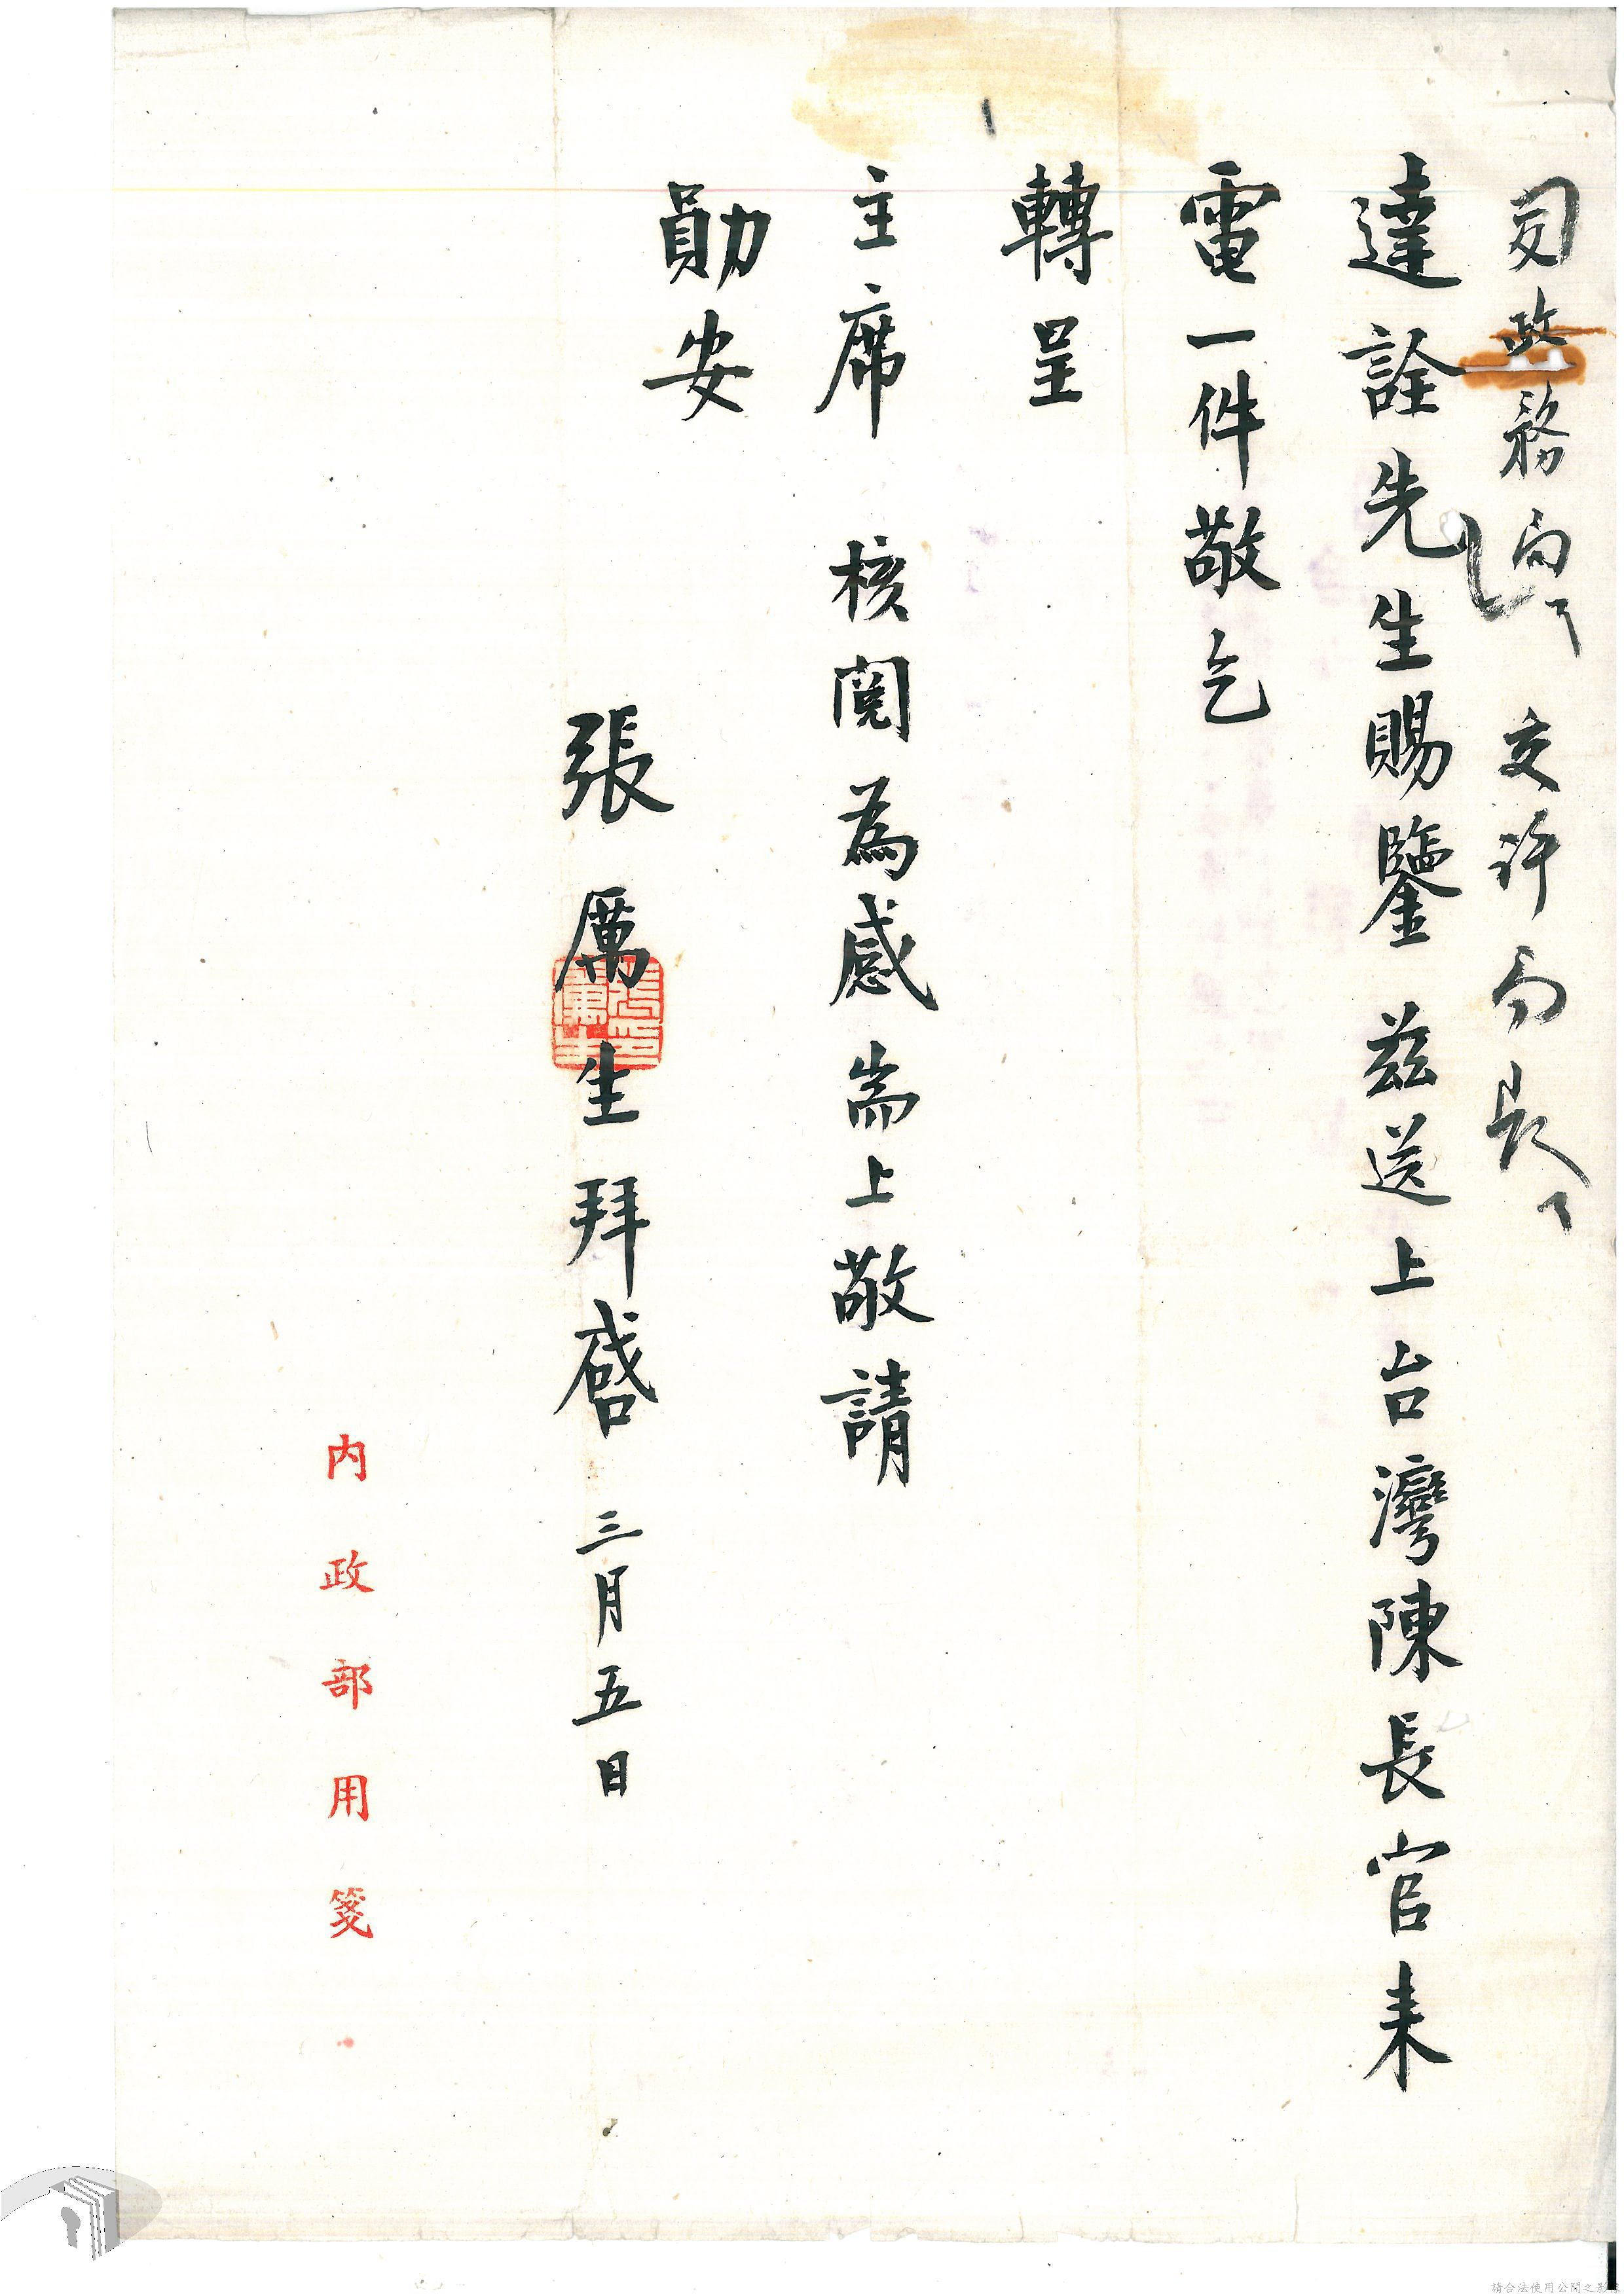 政務局 交許局長
達詮先生賜鑒 茲送上台灣陳長官来
電一件敬乞
轉呈
主席 核閱為感耑上敬請
勛安
張厲生拜啓 三月五日
內政部用箋
請合法使用公開之影